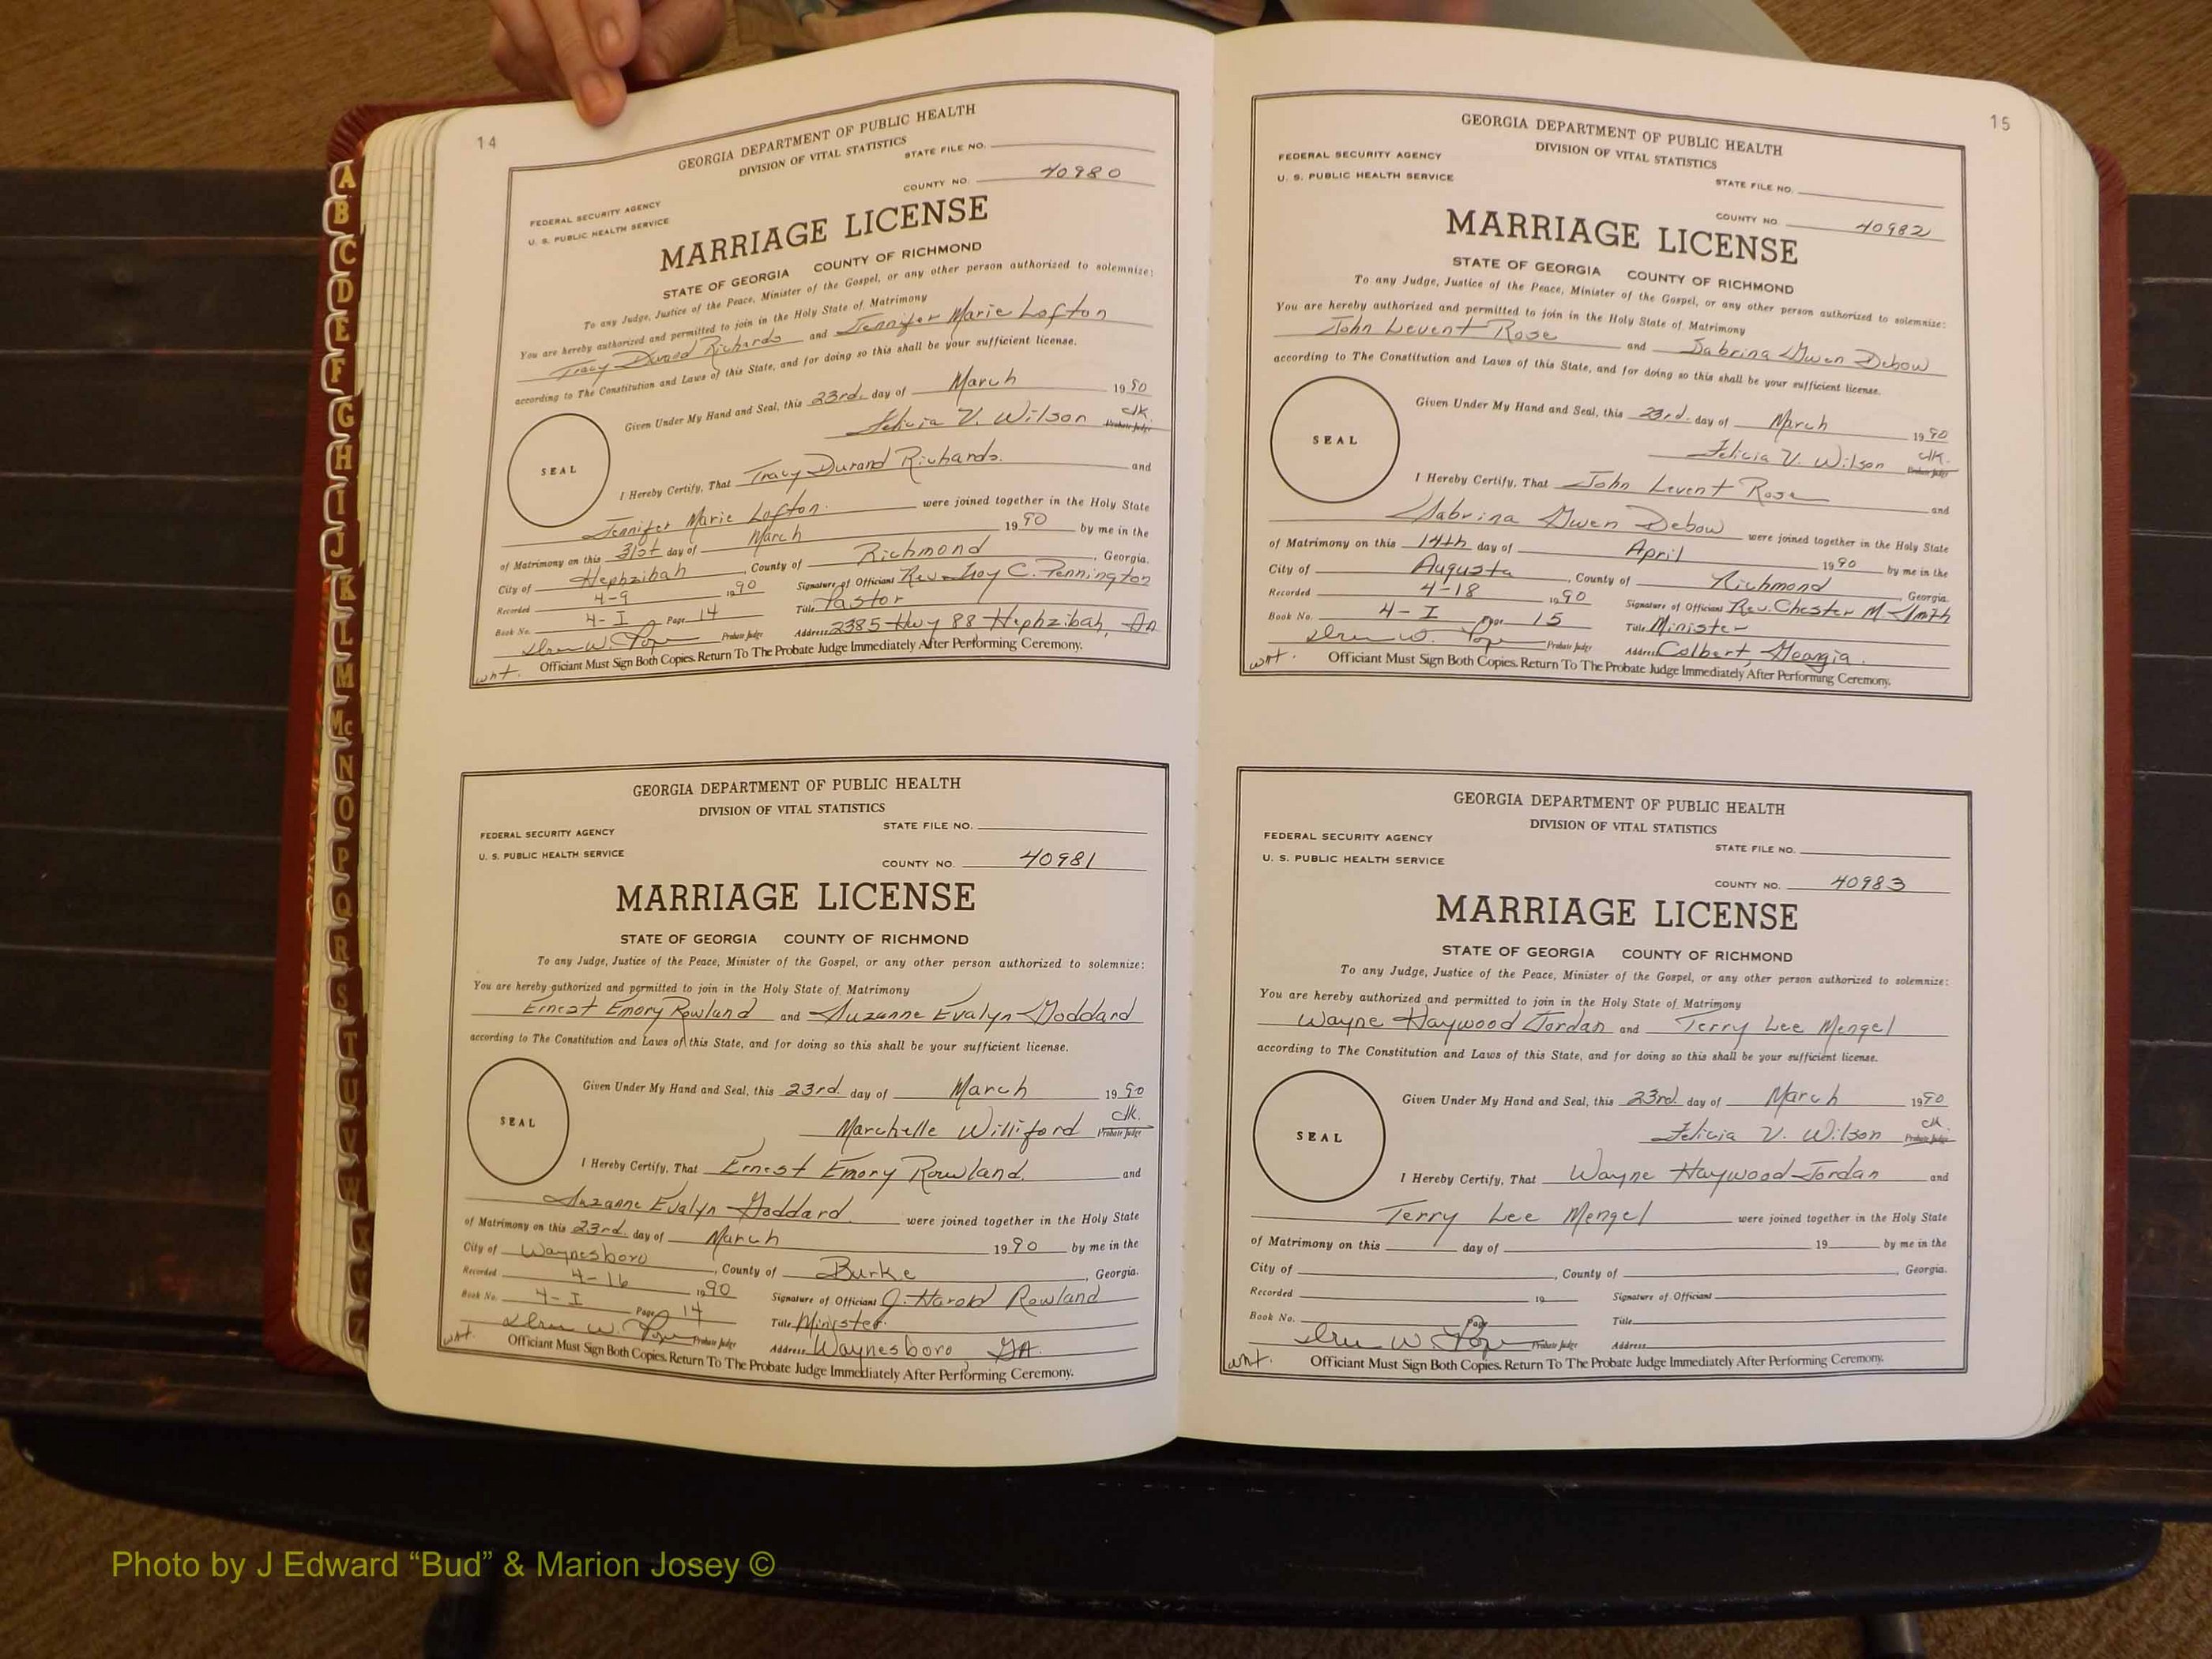 14
GEORGIA DEPARTMENT OF PUBLIC HEALTH
DIVISION OF VITAL STATISTICS
STATE FILE NO.
COUNTY NO. 40980
FEDERAL SECURITY AGENCY
U. S. PUBLIC HEALTH SERVICE
MARRIAGE LICENSE
STATE OF GEORGIA COUNTY OF RICHMOND
To any Judge, Justice of the Peace, Minister of the Gospel, or any other person authorized to solemnize:
You are hereby authorized and permitted to join in the Holy State of Matrimony
Tracy Durand Richards and Jennifer Marie Lofton
according to The Constitution and Laws of this State, and for doing so this shall be your sufficient license.
Given Under My Hand and Seal, this 23rd. day of March 1990
Felicia V. Wilson Clk. Probate Judge
SEAL
I Hereby Certify, That Tracy Durand Richards. and
Jennifer Marie Lofton. were joined together in the Holy State
of Matrimony on this 31st day of March 1990 by me in the
City of Hephzibah, County of Richmond, Georgia.
Recorded 4-9 1990 Signature of Officiant Rev. Troy C. Pennington
Book No. 4-I Page 14 Title Pastor
Probate Judge Address 2385 Hwy 88 Hephzibah, GA
wnt. Officiant Must Sign Both Copies. Return To The Probate Judge Immediately After Performing Ceremony.
GEORGIA DEPARTMENT OF PUBLIC HEALTH
DIVISION OF VITAL STATISTICS
FEDERAL SECURITY AGENCY STATE FILE NO.
U. S. PUBLIC HEALTH SERVICE COUNTY NO. 40981
MARRIAGE LICENSE
STATE OF GEORGIA COUNTY OF RICHMOND
To any Judge, Justice of the Peace, Minister of the Gospel, or any other person authorized to solemnize:
You are hereby authorized and permitted to join in the Holy State of Matrimony
Ernest Emory Rowland and Suzanne Evalyn Goddard
according to The Constitution and Laws of this State, and for doing so this shall be your sufficient license.
Given Under My Hand and Seal, this 23rd. day of March 1990
Marchelle Williford Clk. Probate Judge
SEAL
I Hereby Certify, That Ernest Emory Rowland. and
Suzanne Evalyn Goddard. were joined together in the Holy State
of Matrimony on this 23rd. day of March 1990 by me in the
City of Waynesboro, County of Burke, Georgia.
Recorded 4-16 1990 Signature of Officiant J. Harold Rowland
Book No. 4-I Page 14 Title Minister.
Probate Judge Address Waynesboro GA.
wnt. Officiant Must Sign Both Copies. Return To The Probate Judge Immediately After Performing Ceremony.
15
GEORGIA DEPARTMENT OF PUBLIC HEALTH
DIVISION OF VITAL STATISTICS
FEDERAL SECURITY AGENCY
U. S. PUBLIC HEALTH SERVICE STATE FILE NO.
COUNTY NO. 40982
MARRIAGE LICENSE
STATE OF GEORGIA COUNTY OF RICHMOND
To any Judge, Justice of the Peace, Minister of the Gospel, or any other person authorized to solemnize:
You are hereby authorized and permitted to join in the Holy State of Matrimony
John Levent Rose and Sabrina Gwen Debow
according to The Constitution and Laws of this State, and for doing so this shall be your sufficient license.
Given Under My Hand and Seal, this 23rd. day of March 1990
Felicia V. Wilson Clk. Probate Judge
SEAL
I Hereby Certify, That John Levent Rose and
Sabrina Gwen Debow were joined together in the Holy State
of Matrimony on this 14th day of April 1990 by me in the
City of Augusta, County of Richmond, Georgia.
Recorded 4-18 1990 Signature of Officiant Rev. Chester M. Smith
Book No. 4-I Page 15 Title Minister
Probate Judge Address Colbert, Georgia.
wnt. Officiant Must Sign Both Copies. Return To The Probate Judge Immediately After Performing Ceremony.
GEORGIA DEPARTMENT OF PUBLIC HEALTH
DIVISION OF VITAL STATISTICS
FEDERAL SECURITY AGENCY STATE FILE NO.
U. S. PUBLIC HEALTH SERVICE
COUNTY NO. 40983
MARRIAGE LICENSE
STATE OF GEORGIA COUNTY OF RICHMOND
To any Judge, Justice of the Peace, Minister of the Gospel, or any other person authorized to solemnize:
You are hereby authorized and permitted to join in the Holy State of Matrimony
Wayne Haywood Jordan and Terry Lee Mengel
according to The Constitution and Laws of this State, and for doing so this shall be your sufficient license.
Given Under My Hand and Seal, this 23rd. day of March 1990
Felicia V. Wilson Clk. Probate Judge
SEAL
I Hereby Certify, That Wayne Haywood Jordan and
Terry Lee Mengel were joined together in the Holy State
of Matrimony on this day of 19 by me in the
City of , County of , Georgia.
Recorded 19 Signature of Officiant
Book No. Page Title
Probate Judge Address
wnt. Officiant Must Sign Both Copies. Return To The Probate Judge Immediately After Performing Ceremony.
A
B
C
D
E
F
G
H
I
J
K
L
M
Mc
N
O
P
Q
R
S
T
U
V
W
Z
Photo by J Edward “Bud” & Marion Josey ©